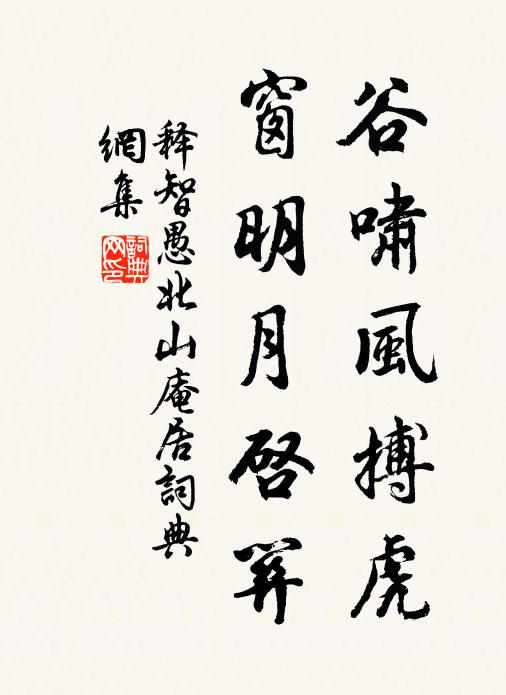 谷嘯風搏虎
窗明月啓羿
释智愚北山庵居詞典
網集
詞典
网印